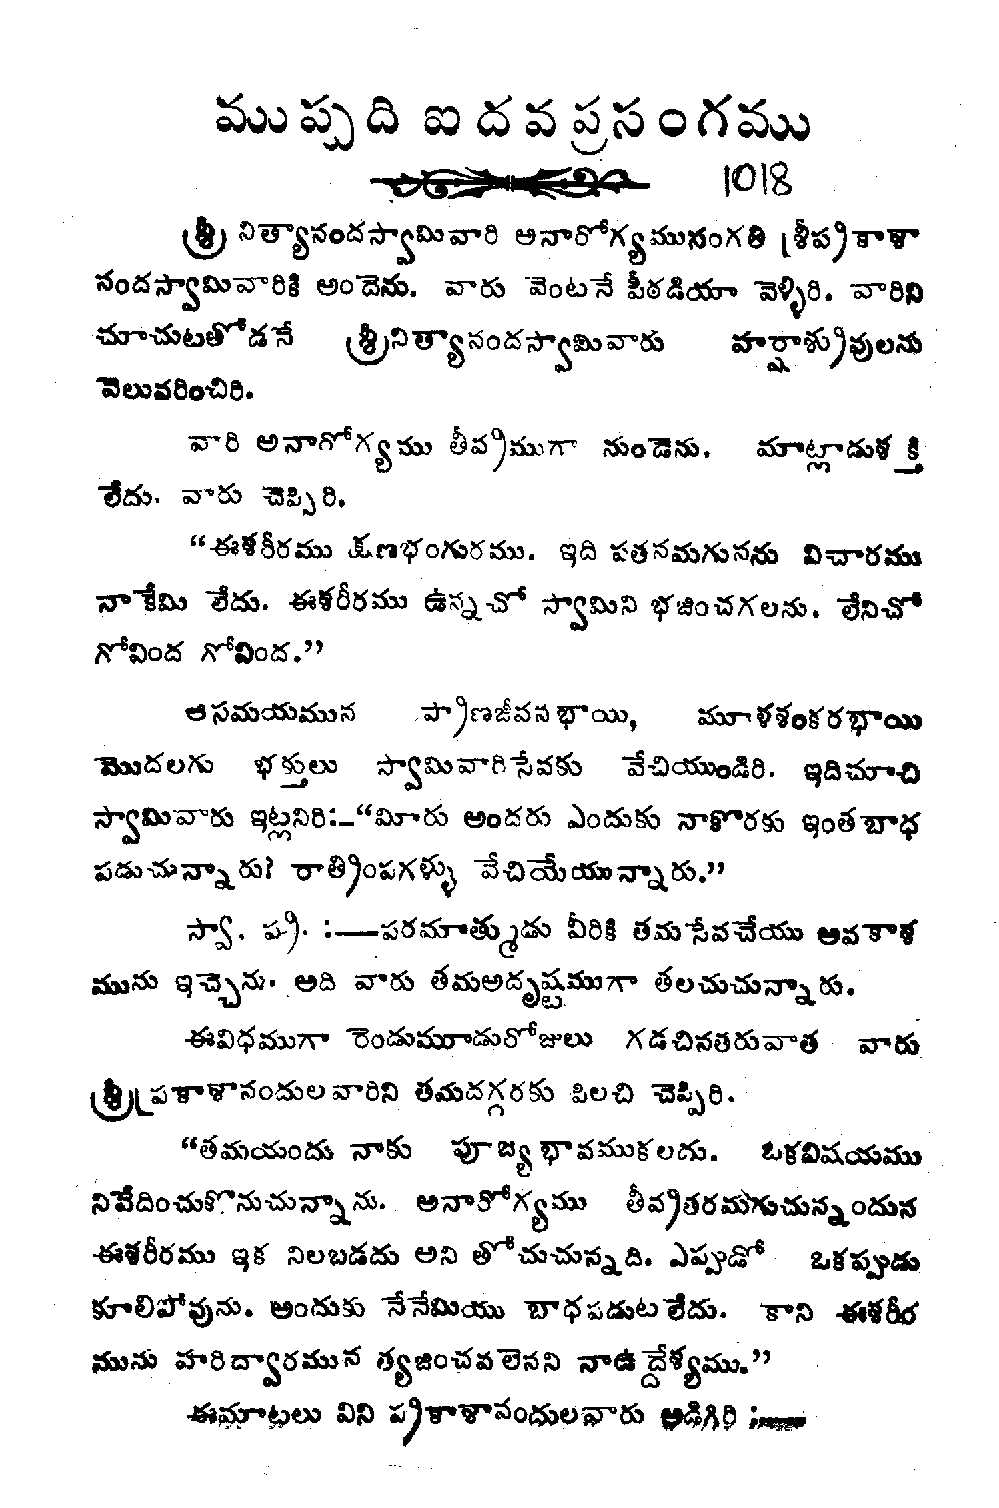 ముప్పది ఐదవప్రసంగము
1018
శ్రీ నిత్యానందస్వామివారి అనారోగ్యముసంగతి శ్రీప్రకాశా
నందస్వామివారికి అందెను. వారు వెంటనే పీఠడియా వెళ్ళిరి. వారిని
చూచుటతోడనే శ్రీనిత్యానందస్వామివారు హర్షాశ్రువులను
వెలువరించిరి.
వారి అనారోగ్యము తీవ్రముగా నుండెను. మాట్లాడుశక్తి
లేదు. వారు చెప్పిరి.
“ఈశరీరము క్షణభంగురము. ఇది పతనమగునను విచారము
నాకేమి లేదు. ఈశరీరము ఉన్నచో స్వామిని భజించగలను. లేనిచో
గోవింద గోవింద.”
ఆసమయమున ప్రాణజీవనభాయి, మూళశంకరభాయి
మొదలగు భక్తులు స్వామివారిసేవకు వేచియుండిరి. ఇదిచూచి
స్వామివారు ఇట్లనిరి:–“మీరు అందరు ఎందుకు నాకొరకు ఇంతబాధ
పడుచున్నారు? రాత్రింపగళ్ళు వేచియేయున్నారు.”
స్వా. ప్ర. :—పరమాత్ముడు వీరికి తమసేవచేయు అవకాశ
మును ఇచ్చెను. అది వారు తమఅదృష్టముగా తలచుచున్నారు.
ఈవిధముగా రెండుమూడురోజులు గడచినతరువాత వారు
శ్రీప్రకాశానందులవారిని తమదగ్గరకు పిలచి చెప్పిరి.
“తమయందు నాకు పూజ్యభావముకలదు. ఒకవిషయము
నివేదించుకొనుచున్నాను. అనారోగ్యము తీవ్రతరమగుచున్నందున
ఈశరీరము ఇక నిలబడదు అని తోచుచున్నది. ఎప్పుడో ఒకప్పుడు
కూలిపోవును. అందుకు నేనేమియు బాధపడుటలేదు. కాని ఈశరీర
మును హరిద్వారమున త్యజించవలెనని నాఉద్దేశ్యము.”
ఈమాటలు విని ప్రకాశానందులవారు అడిగిరి :—